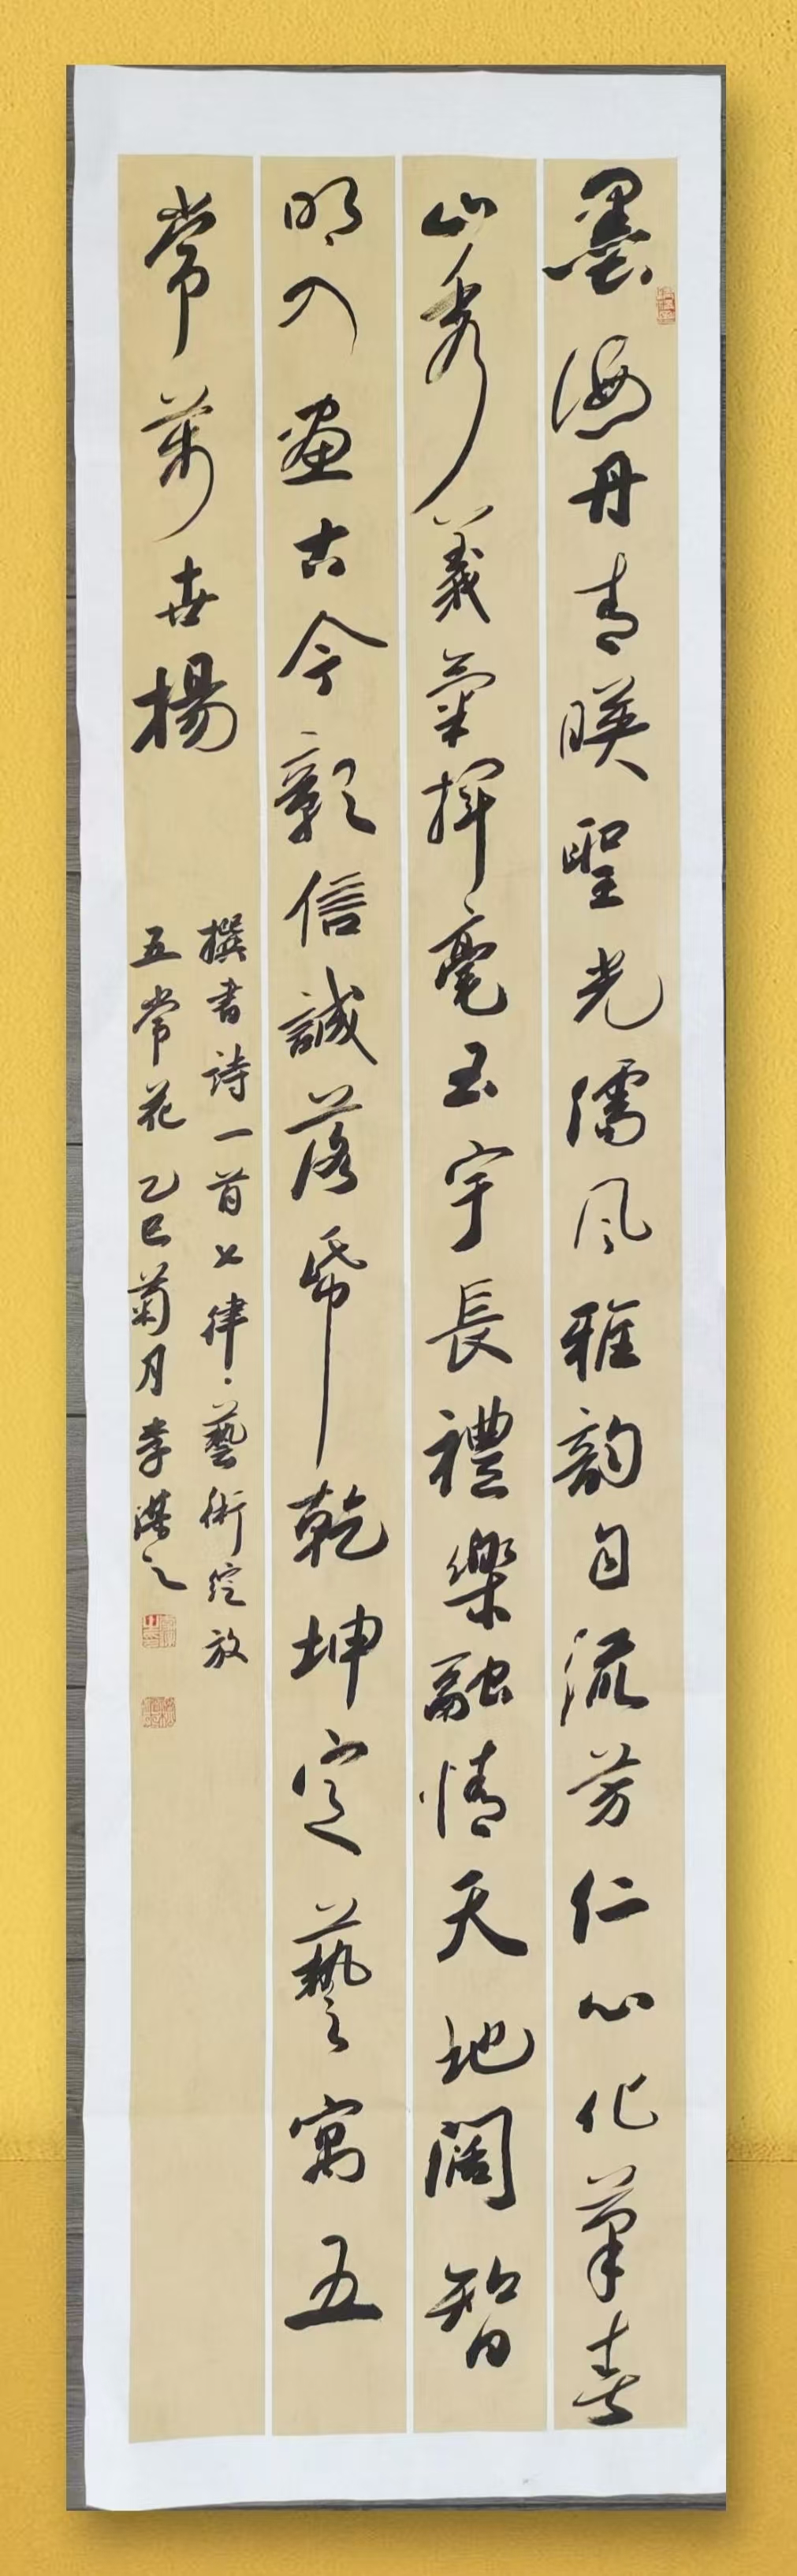 墨海丹青暎聖光儒风雅韵自流芳仁心化筆春
山秀義氣揮毫玉宇長禮樂融情天地闊智
明入畫古今彰信誠落帋乾坤定藝寓五
常萬世揚
撰書詩一首七律·藝術綻放
五常花乙巳菊月李之